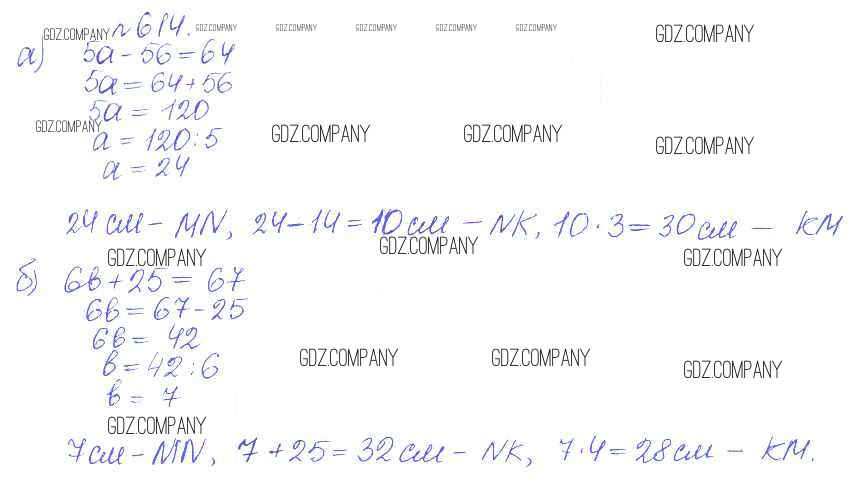 №614. GDZ.COMPANY GDZ.COMPANY GDZ.COMPANY GDZ.COMPANY GDZ.COMPANY
GDZ.COMPANY GDZ.COMPANY
а) 5a - 56 = 64
5a = 64 + 56
5a = 120
GDZ.COMPANY GDZ.COMPANY GDZ.COMPANY GDZ.COMPANY
a = 120 : 5
a = 24
24 см - MN, 24 - 14 = 10 см - NK, 10 · 3 = 30 см - KM
GDZ.COMPANY GDZ.COMPANY GDZ.COMPANY
б) 6в + 25 = 67
6в = 67 - 25
6в = 42
GDZ.COMPANY GDZ.COMPANY GDZ.COMPANY
в = 42 : 6
в = 7
GDZ.COMPANY
7 см - MN, 7 + 25 = 32 см - NK, 7 · 4 = 28 см - KM.